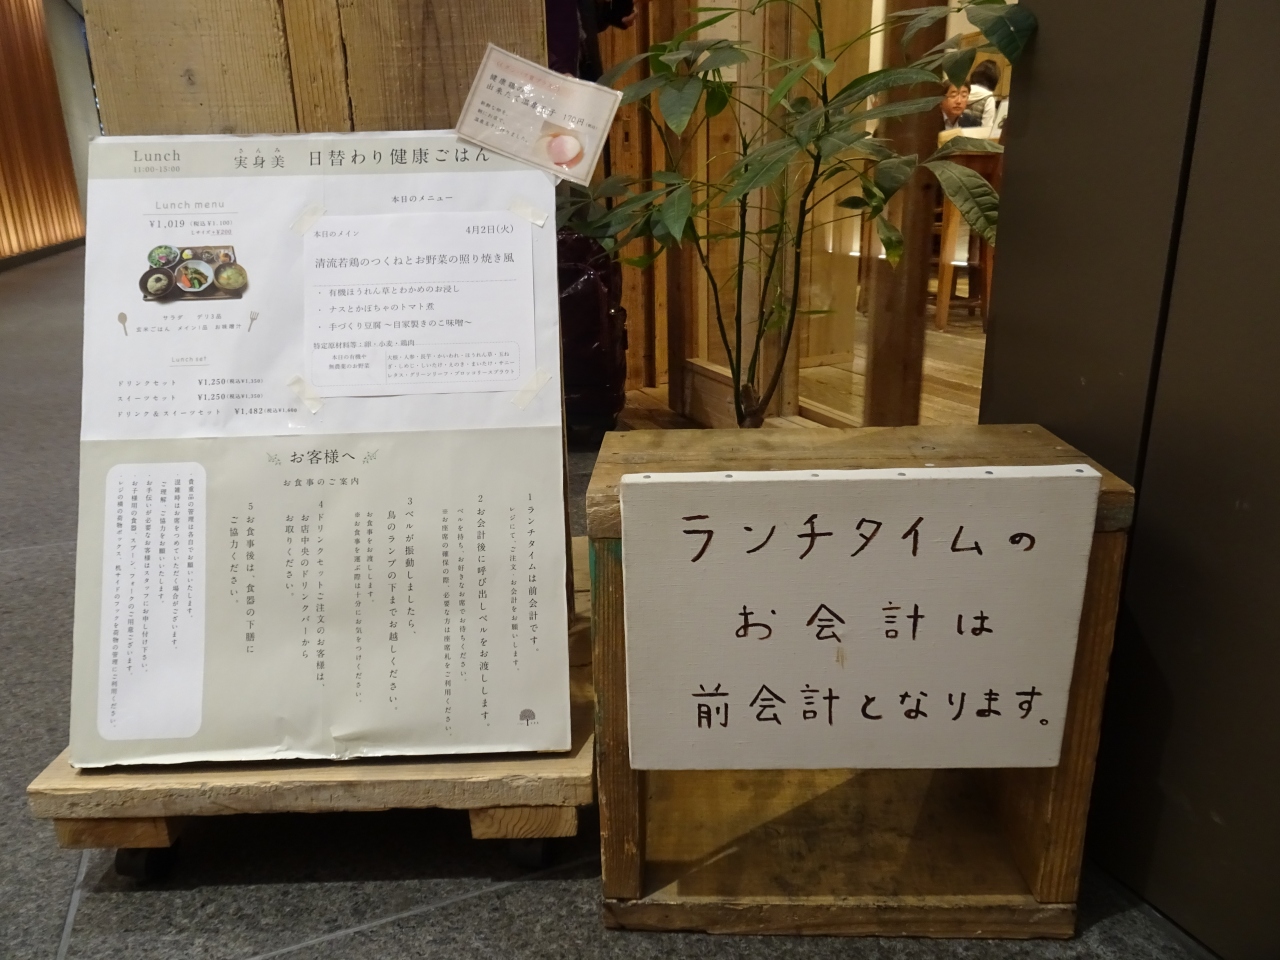 Lunch
11:00-15:00
さんみ
実身美 日替わり健康ごはん
出来たて温泉
170円
Lunch menu
¥1,019 (税込¥1,100)
サラダ デリ3品
玄米ごはん メイン1品 お味噌汁
Lunch set
ドリンクセット ¥1,250 (税込¥1,350)
スイーツセット ¥1,250 (税込¥1,350)
ドリンク&スイーツセット ¥1,482
本日のメニュー
本日のメイン 4月2日(火)
清流若鶏のつくねとお野菜の照り焼き風
・ 有機ほうれん草とわかめのお浸し
・ ナスとかぼちゃのトマト煮
・ 手づくり豆腐 〜自家製きのこ味噌〜
特定原材料等:卵・小麦・鶏肉
本日の有機や
無農薬のお野菜
お客様へ
お食事のご案内
1 ランチタイムは前会計です。
レジにて、ご注文・お会計をお願いします。
2 お会計後に呼び出しベルをお渡しします。
ベルを持ち、お好きなお席でお待ちください。
※お座席の確保の際、必要な方は座席札をご利用ください。
3 ベルが振動しましたら、
鳥のランプの下までお越しください。
お食事をお渡しします。
※お食事を運ぶ際は十分にお気をつけください。
4 ドリンクセットご注文のお客様は、
お店中央のドリンクバーから
お取りください。
5 お食事後は、食器の下膳に
ご協力ください。
・貴重品の管理は各自でお願いいたします。
・混雑時はお席をつめていただく場合がございます。
ご理解、ご協力をお願いいたします。
・お手伝いが必要なお客様はスタッフにお申し付け下さい。
・お子様用の食器、スプーン、フォークのご用意ございます。
ランチタイムの
お会計は
前会計となります。